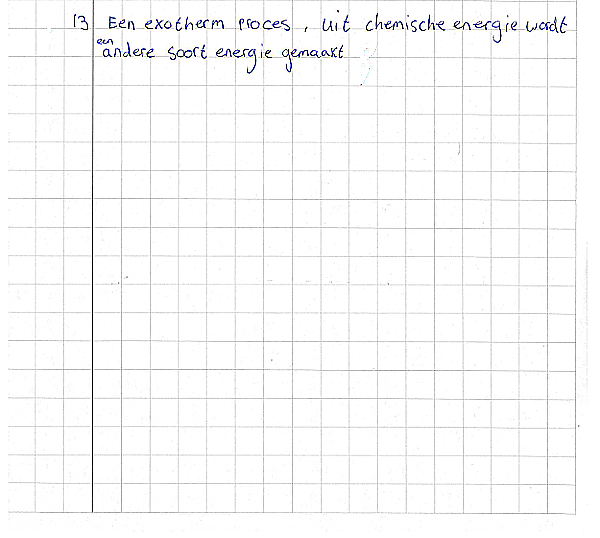 13 Een exotherm proces, uit chemische energie wordt
een andere soort energie gemaakt